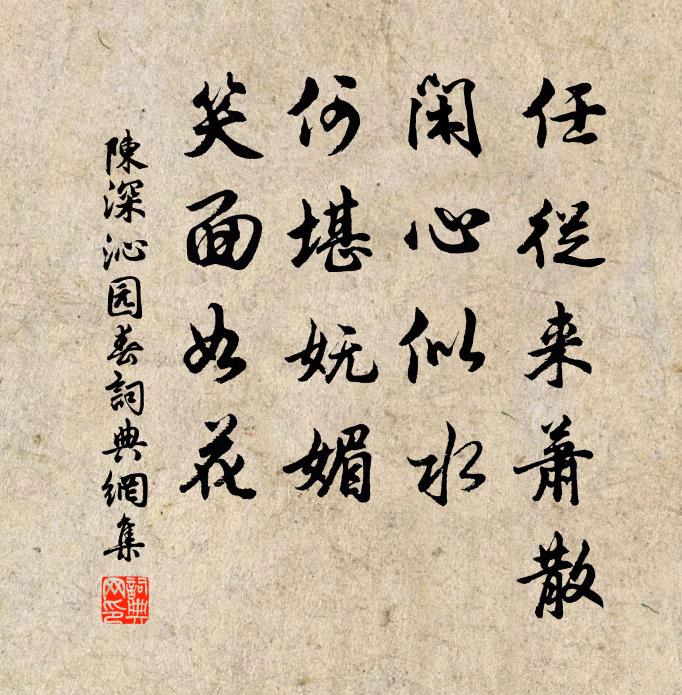 任從来蕭散
閑心似水
何堪妩媚
笑面如花
陳深沁园春詞典網集
詞典網印